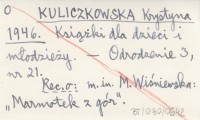 O KULICZKOWSKA Krystyna
1946. Książki dla dzieci i
młodzieży. — Odrodzenie 3,
nr 21.
Rec. o: m.in. M. Wiśniewska:
„Marmotek z gór".